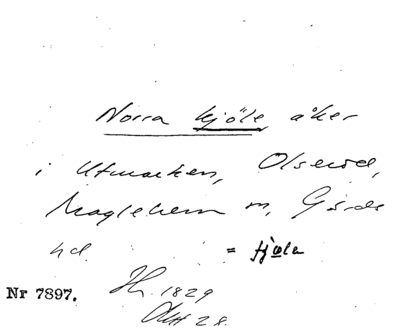 Norra kjöle, åker
i Utmarken, Olseröd,
Maglehem sn, Gärds
hd. = fjäle
Nr 7897. 1829
Akt 28.